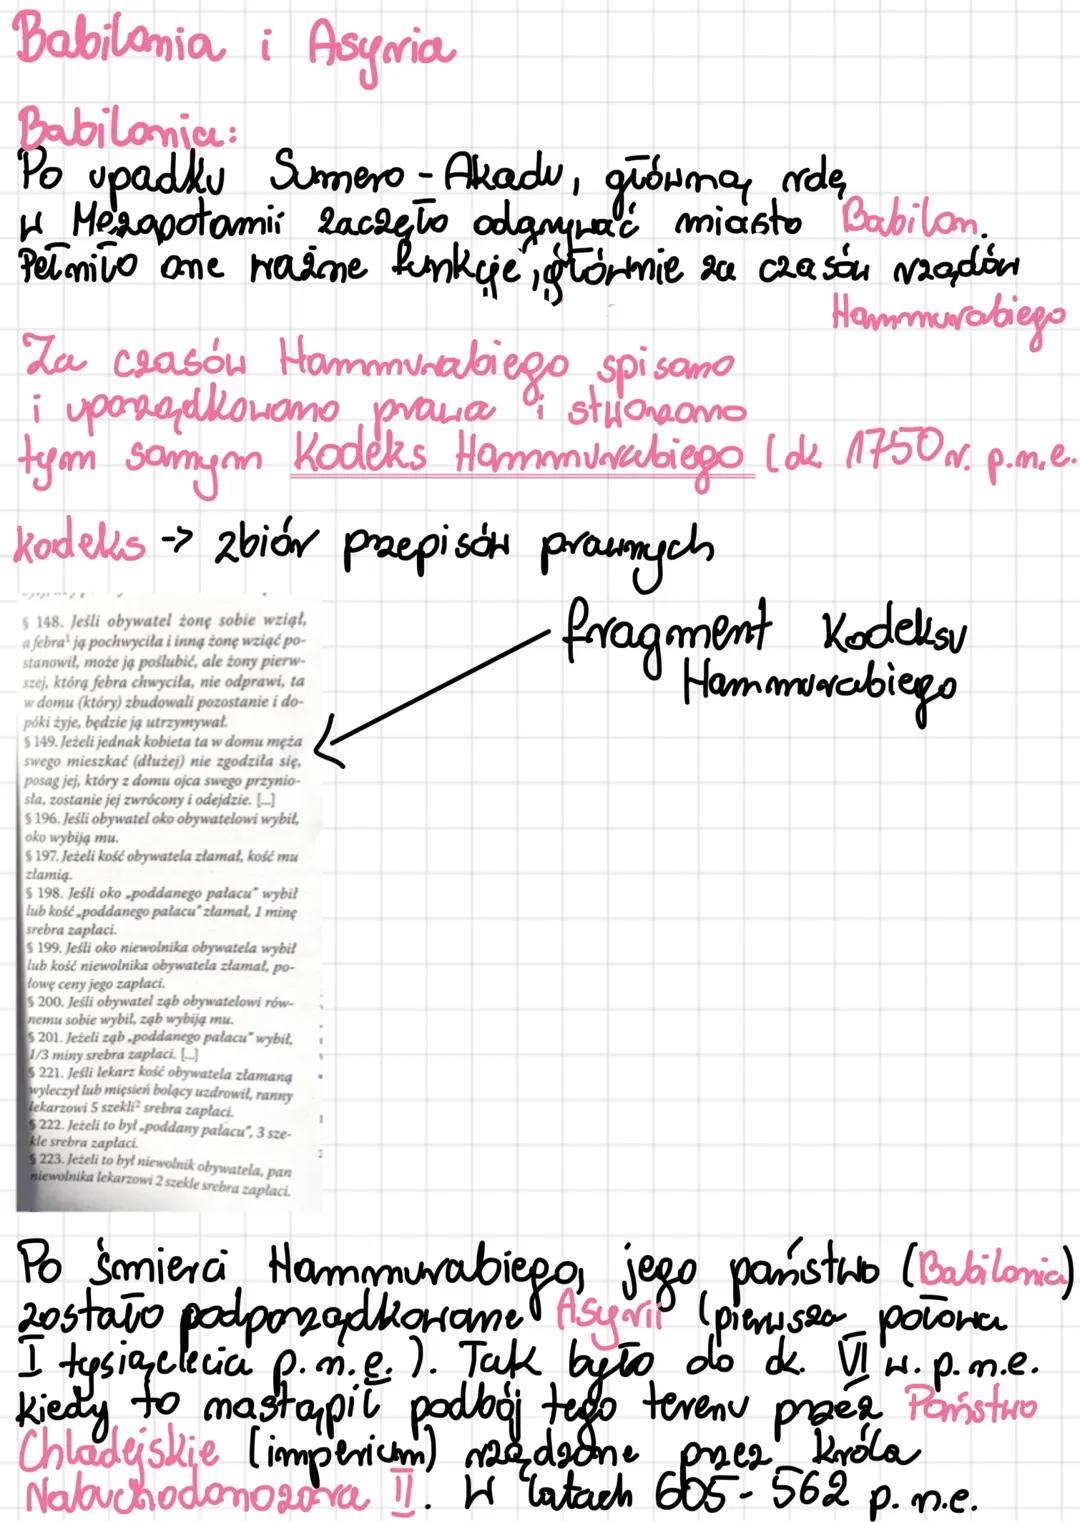 Babilonia i Asyria
Babilonia:
Po upadku Sumero-Akadu, główną rolę
w Mezapotamii zaczęło odgrywać miasto Babilon.
Pełniło one ważne funkcje, głównie za czasów rządów
Hammurabiego
Za czasów Hammurabiego spisano
i uporządkowano prawa i stworzono
tym samym Kodeks Hammurabiego (ok. 1750 r. p.n.e.
kodeks -> zbiór przepisów prawnych
fragment Kodeksu
Hammurabiego
§ 148. Jeśli obywatel żonę sobie wziął,
a febra¹ ją pochwyciła i inną żonę wziąć po-
stanowił, może ją poślubić, ale żony pierw-
szej, którą febra chwyciła, nie odprawi, ta
w domu (który) zbudowali pozostanie i do-
póki żyje, będzie ją utrzymywał.
§ 149. Jeżeli jednak kobieta ta w domu męża
swego mieszkać (dłużej) nie zgodziła się,
posag jej, który z domu ojca swego przynio-
sła, zostanie jej zwrócony i odejdzie. [...]
§ 196. Jeśli obywatel oko obywatelowi wybił,
oko wybiją mu.
§ 197. Jeżeli kość obywatela złamał, kość mu
złamią.
§ 198. Jeśli oko „poddanego pałacu" wybił
lub kość „poddanego pałacu" złamał, 1 minę
srebra zapłaci.
§ 199. Jeśli oko niewolnika obywatela wybił
lub kość niewolnika obywatela złamał, po-
łowę ceny jego zapłaci.
§ 200. Jeśli obywatel ząb obywatelowi rów-
nemu sobie wybił, ząb wybiją mu.
§ 201. Jeżeli ząb „poddanego pałacu" wybił,
1/3 miny srebra zapłaci. [...]
§ 221. Jeśli lekarz kość obywatela złamaną
wyleczył lub mięsień bolący uzdrowił, ranny
lekarzowi 5 szekli² srebra zapłaci.
§ 222. Jeżeli to był „poddany pałacu", 3 sze-
kle srebra zapłaci.
§ 223. Jeżeli to był niewolnik obywatela, pan
niewolnika lekarzowi 2 szekle srebra zapłaci.
Po śmierci Hammurabiego, jego państwo (Babilonia)
zostało podporządkowane Asyrii (pierwsza połowa
I tysiąclecia p.n.e.). Tak było do ok. VI w. p.n.e.
kiedy to nastąpił podbój tego terenu przez Państwo
Chladejskie (imperium) rządzone przez króla
Nabuchodonozora II. W latach 605-562 p.n.e.